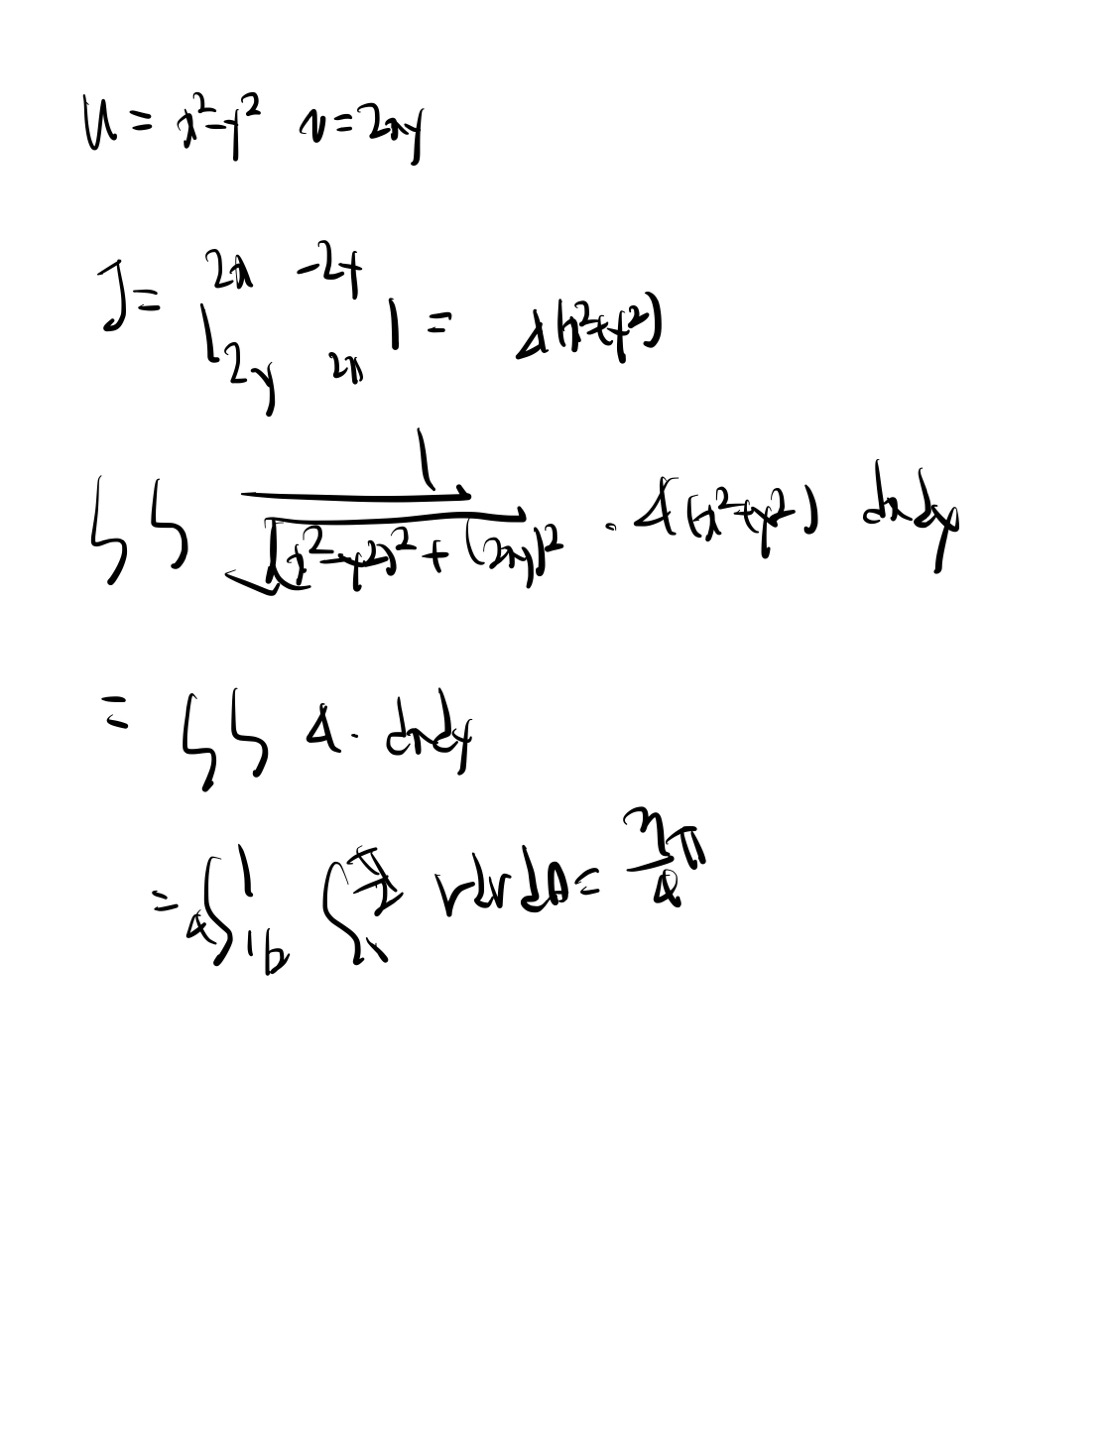 u = x²-y² v=2xy
J= | 2x -2y
2y 2x | = 4(x²+y²)
∫∫ 1/√((x²-y²)²+(2xy)²) · 4(x²+y²) dxdy
= ∫∫ 4 · dxdy
= 4∫ 1 16 ∫ π/2 r dr dθ = π/4